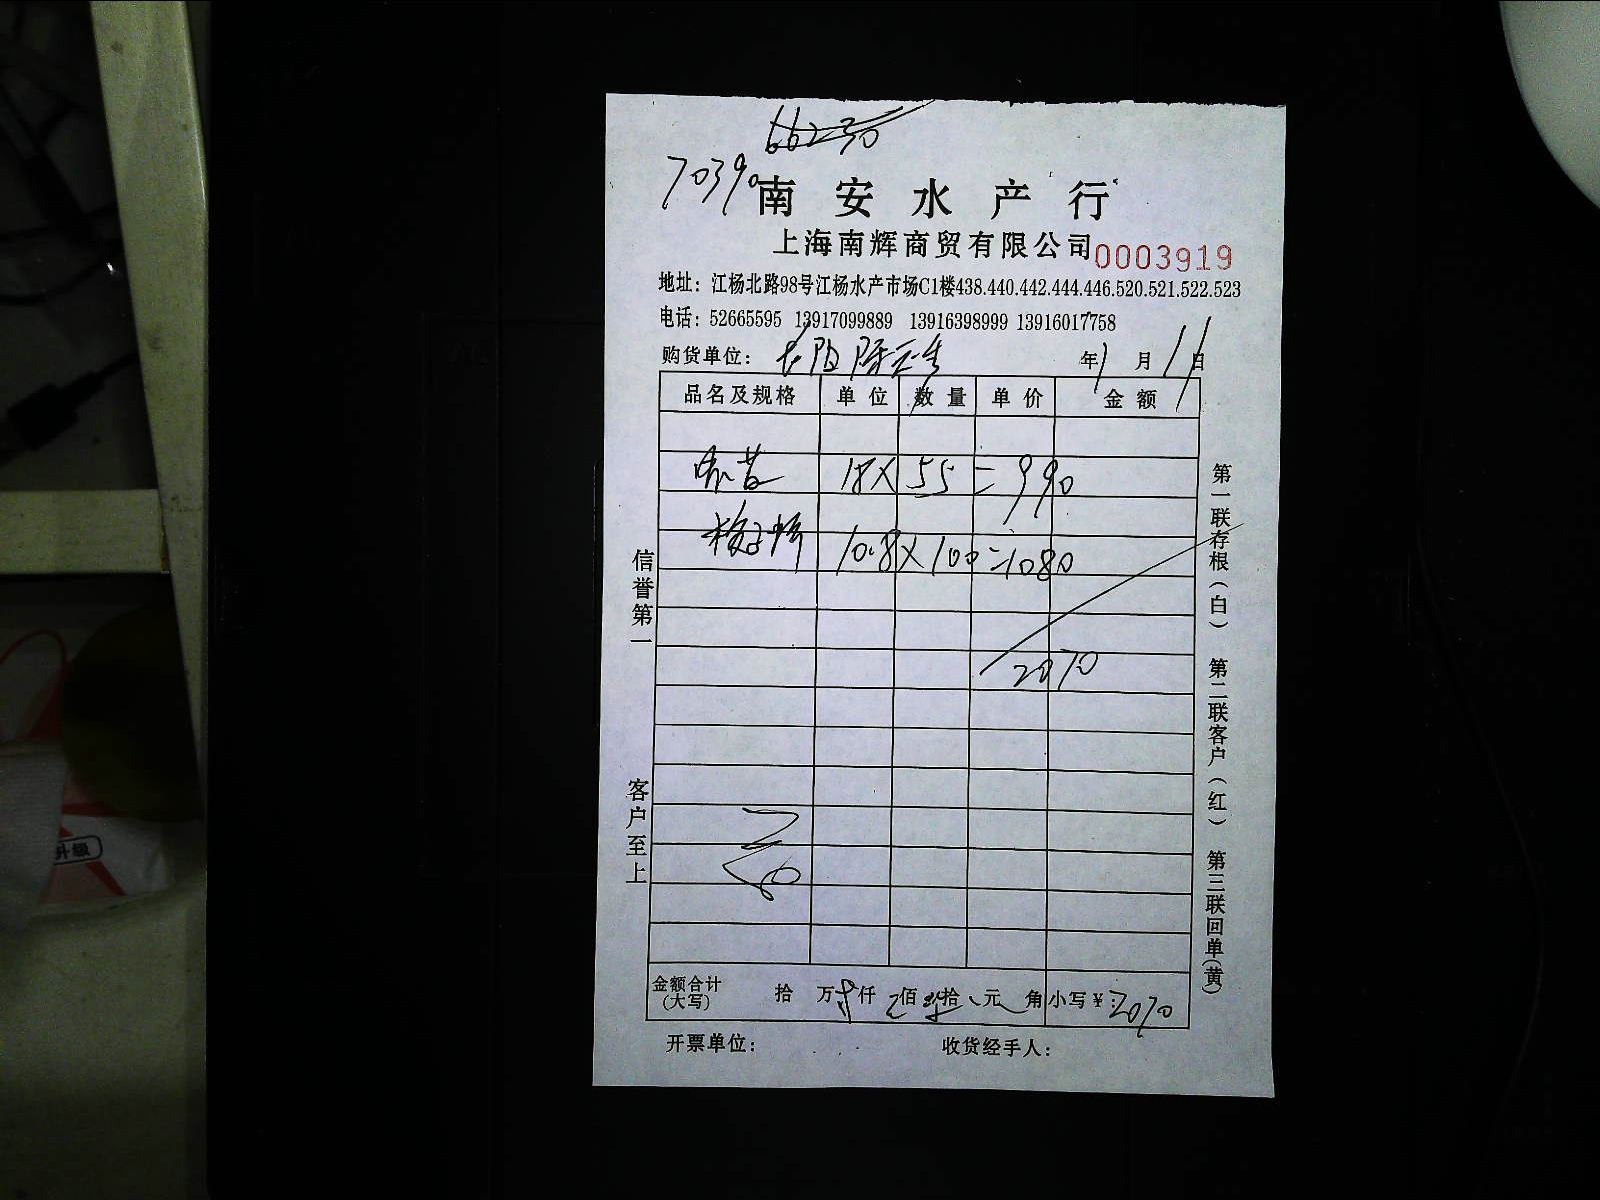 66230
70390
南安水产行
上海南辉商贸有限公司 0003919
地址：江杨北路98号江杨水产市场C1楼438.440.442.444.446.520.521.522.523
电话：52665595 13917099889 13916398999 13916017758
购货单位： 年1月11日
品名及规格 单位 数量 单价 金额
18X 55 = 990
梅子 10.8X 100 = 1080
2070
信誉第一 客户至上
第一联存根（白） 第二联客户（红） 第三联回单（黄）
金额合计（大写） 拾 万 仟 佰 拾 元 角 小写￥：2070
开票单位： 收货经手人：
升級